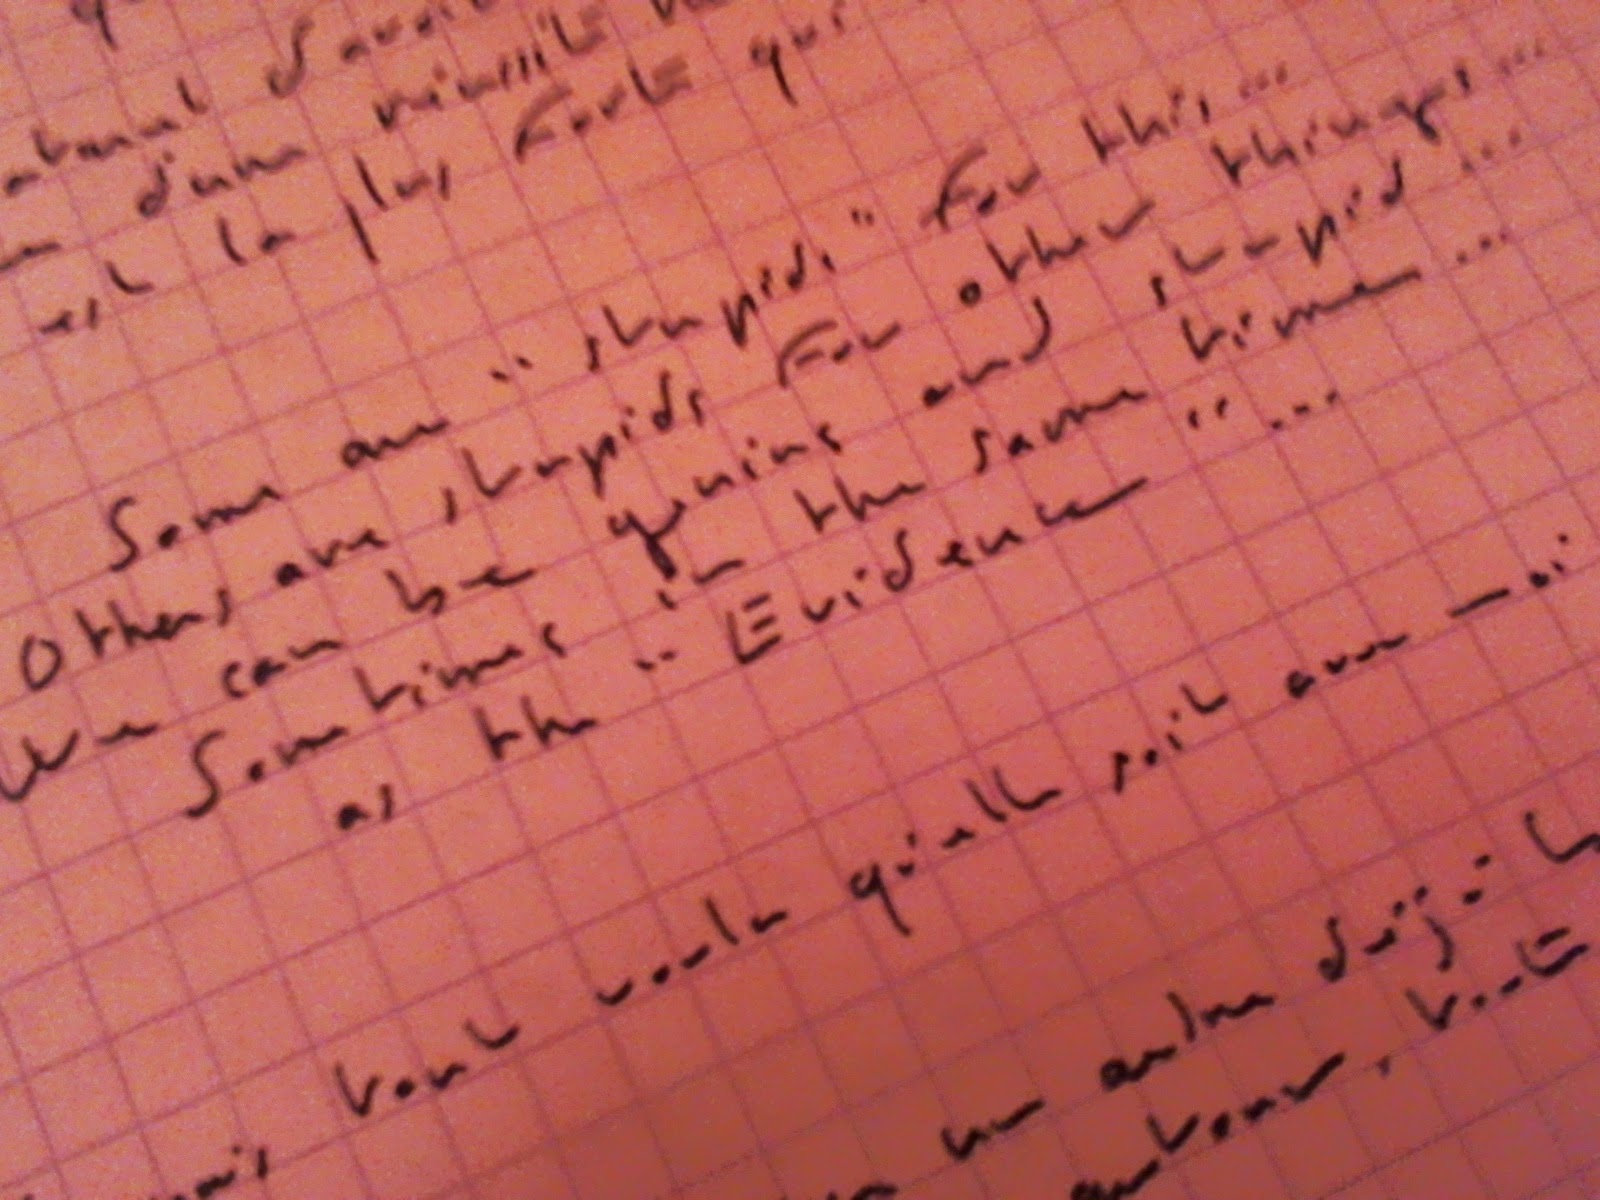 d'une
est la plus forte qui
Some are " stupids " for this ...
Others are stupids for other things ...
We can be genius and stupid ...
Sometimes in the same time ...
as the " Evidence " ...
tout voulu qu'elle soit avec moi
un autre déjà
autour. toute